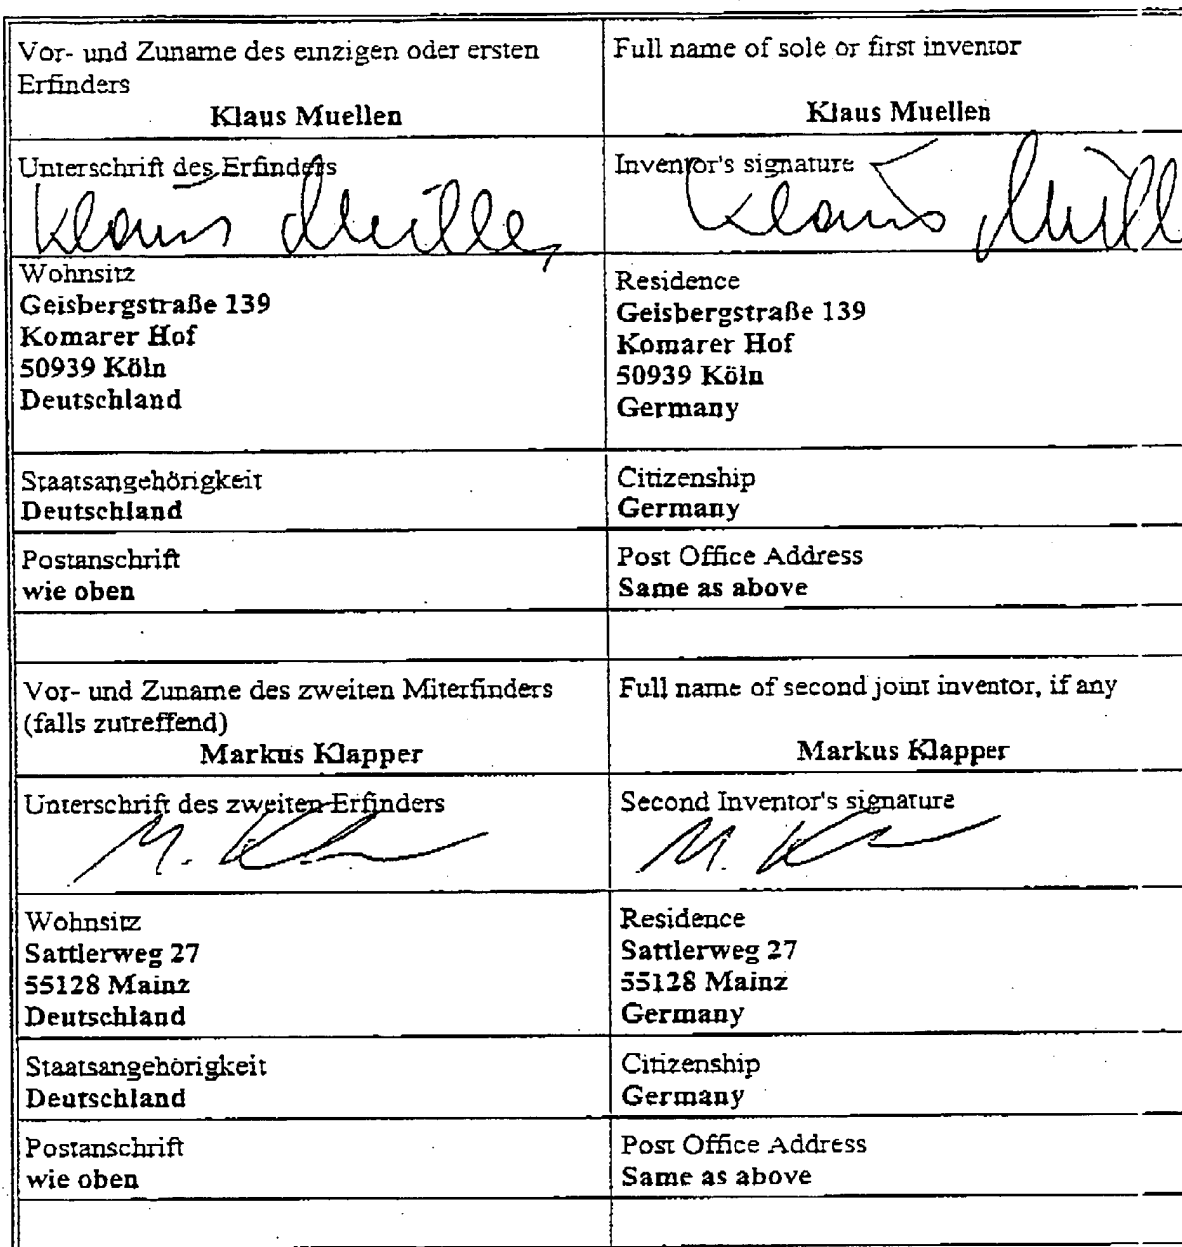 Vor- und Zuname des einzigen oder ersten
Erfinders
Klaus Muellen
Full name of sole or first inventor
Klaus Muellen
Unterschrift des Erfinders
Klaus Müllen
Inventor's signature
Klaus Müll
Wohnsitz
Geisbergstraße 139
Komarer Hof
50939 Köln
Deutschland
Residence
Geisbergstraße 139
Komarer Hof
50939 Köln
Germany
Staatsangehörigkeit
Deutschland
Citizenship
Germany
Postanschrift
wie oben
Post Office Address
Same as above
Vor- und Zuname des zweiten Miterfinders
(falls zutreffend)
Markus Klapper
Full name of second joint inventor, if any
Markus Klapper
Unterschrift des zweiten Erfinders
M.
Second Inventor's signature
M.
Wohnsitz
Sattlerweg 27
55128 Mainz
Deutschland
Residence
Sattlerweg 27
55128 Mainz
Germany
Staatsangehörigkeit
Deutschland
Citizenship
Germany
Postanschrift
wie oben
Post Office Address
Same as above